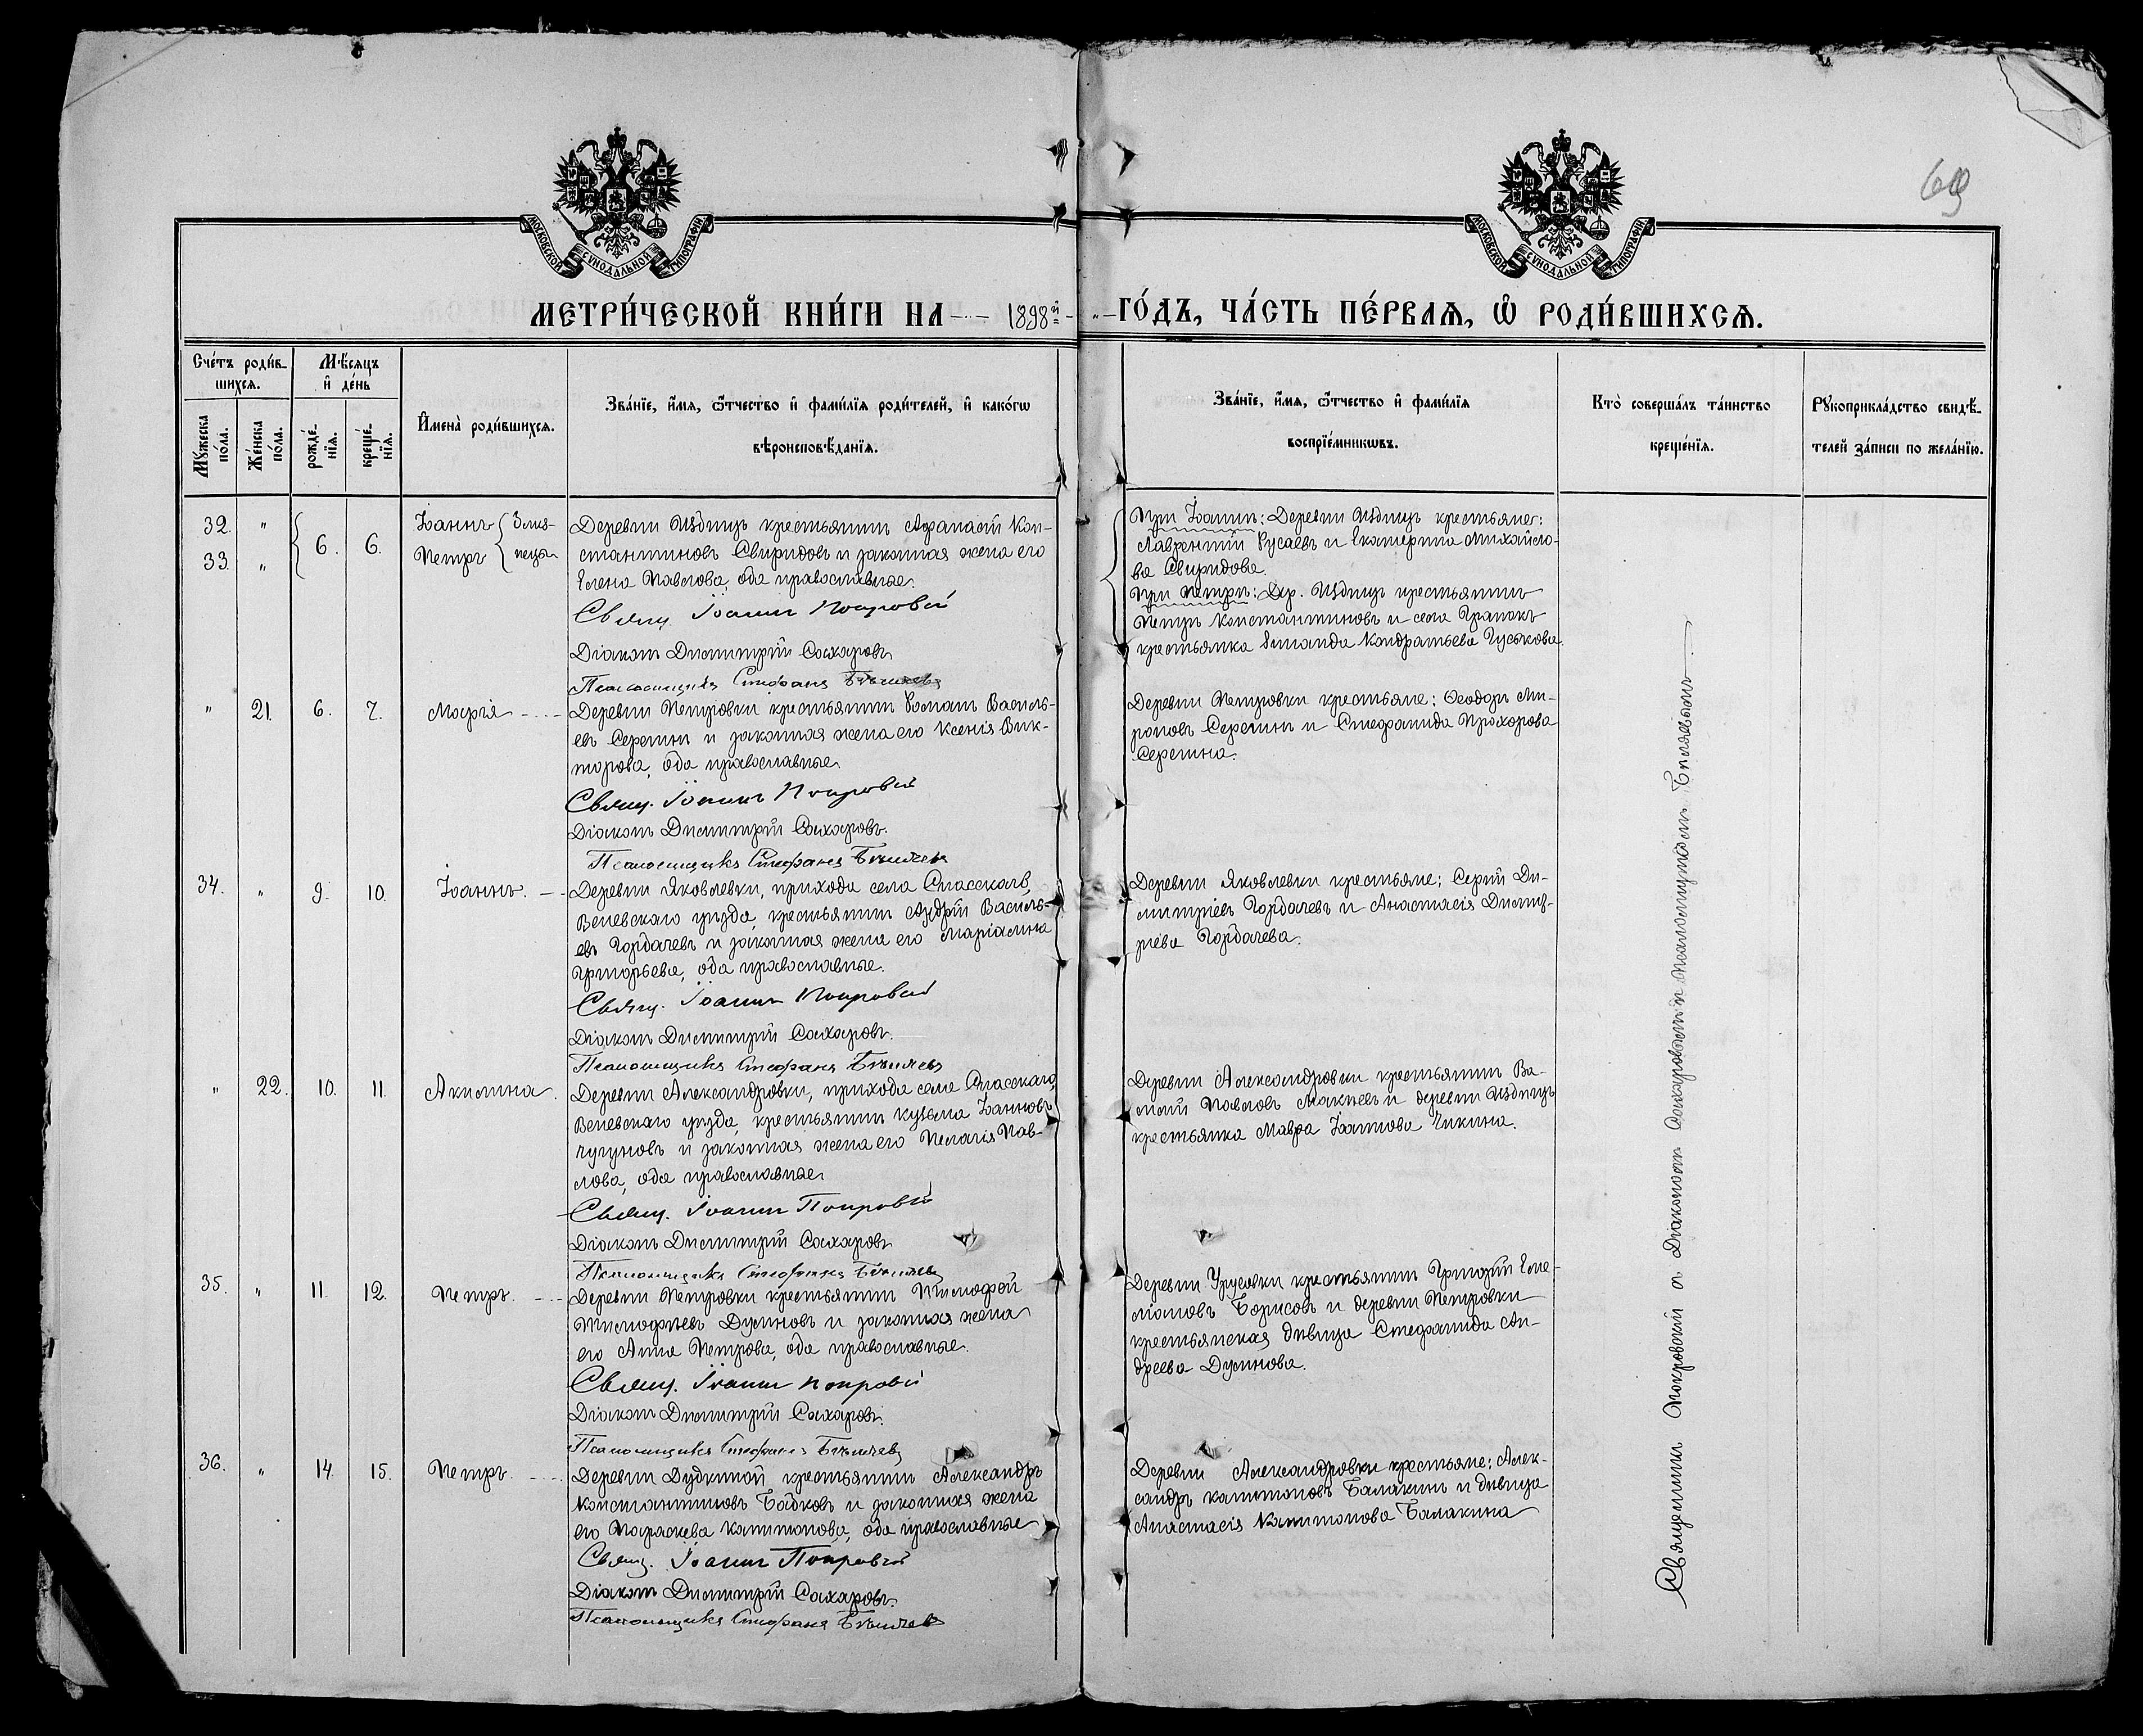 69
МОСКОВСКОЙ СУНОДАЛЬНОЙ ТИПОГРАФІИ
МОСКОВСКОЙ СУНОДАЛЬНОЙ ТИПОГРАФІИ
МЕТРИ́ЧЕСКОЙ КНИ́ГИ НА 1898й ГО́ДЪ, ЧА́СТЬ ПЕ́РВАЯ, Ѡ҆ РОДИ́ВШИХСЯ.
Сче́тъ роди́в-
шихся.
Мѣ́сяцъ
и҆ де́нь
Мꙋ́жеска по́ла.
Же́нска по́ла.
рожде́-нїя.
креще́-нїя.
И҆мена̀ роди́вшихся.
Зва́нїе, и҆́мя, ѻ҆́тчество и҆ фами́лїя роди́телей, и҆ како́гѡ
вѣроисповѣ́данїя.
Зва́нїе, и҆́мя, ѻ҆́тчество и҆ фами́лїя
воспрїе́мникѡвъ.
Кто̀ соверша́лъ та́инство
креще́нїя.
Рꙋкоприкла́дство свидѣ́-
телей за́писи по жела́нїю.
32. " 6. 6. Іоаннъ Близ-
33. " Петръ нецы
Деревни Изб­ищъ крестьянинъ Аѳанасій Кон-
стантиновъ Свиридовъ и законная жена его
Елена Павлова, оба православные.
Свящ. Іоаннъ Покровскій
Діаконъ Димитрій Сахаровъ
Псаломщикъ Стефанъ Бѣляевъ
При Іоаннѣ: Деревни крестьяне:
Лаврентій Русаевъ и Екатерина Михайло-
ва Свиридова.
При Петрѣ: Дер. крестьянинъ
Петръ Константиновъ и села Гранокъ
крестьянка Кондратьева Гуськова.
" 21. 6. 7. Марія
Деревни Петровки крестьянинъ Романъ Василь-
евъ Серегинъ и законная жена его Ксенія Вик-
торова, оба православные
Свящ. Іоаннъ Покровскій
Діаконъ Димитрій Сахаровъ.
Псаломщикъ Стефанъ Бѣляевъ
Деревни Петровки крестьяне: Ѳеодоръ Ми-
роновъ Серегинъ и Стефанида Прохорова
Серегина.
34. " 9. 10. Іоаннъ.
Деревни Яковлевки, прихода села Спасскаго,
Веневскаго уѣзда, крестьянинъ Андрей Василь-
евъ Горбачевъ и законная жена его Маріамна
Григорьева, оба православные.
Свящ. Іоаннъ Покровскій
Діаконъ Димитрій Сахаровъ.
Псаломщикъ Стефанъ Бѣляевъ
Деревни Яковлевки крестьяне: Сергій Ди-
митріевъ Горбачевъ и Анастасія Димит-
ріева Горбачева.
" 22. 10. 11. Акилина.
Деревни Александровки, прихода села Спасскаго,
Веневскаго уѣзда, крестьянинъ Кузьма Іоанновъ
Чугуновъ и законная жена его Пелагія Пав-
лова, оба православные
Свящ. Іоаннъ Покровскій
Діаконъ Димитрій Сахаровъ
Псаломщикъ Стефанъ Бѣляевъ
Деревни Александровки крестьянинъ Ва-
силій Павловъ и деревни
крестьянка Мавра Іоаннова Чикина.
35. " 11. 12. Петръ.
Деревни Петровки крестьянинъ Тимофей
Тимофеевъ Дуліновъ и законная жена
его Анна Петрова, оба православные.
Свящ. Іоаннъ Покровскій
Діаконъ Димитрій Сахаровъ.
Псаломщикъ Стефанъ Бѣляевъ
Деревни Урусовки крестьянинъ Григорій Еме-
ліановъ Борисовъ и деревни Петровки
крестьянская дѣвица Стефанида Ан-
дреева
36. " 14. 15. Петръ.
Деревни Дудкиной крестьянинъ Александръ
Константиновъ Бабковъ и законная жена
его Параскева Капитонова, оба православные
Свящ. Іоаннъ Покровскій
Діаконъ Димитрій Сахаровъ.
Псаломщикъ Стефанъ Бѣляевъ
Деревни Александровки крестьяне: Алек-
сандръ Капитоновъ Балакинъ и дѣвица
Анастасія Капитонова Балакина
Священникъ Покровскій съ Діакономъ Сахаровымъ и Псаломщикомъ Бѣляевымъ